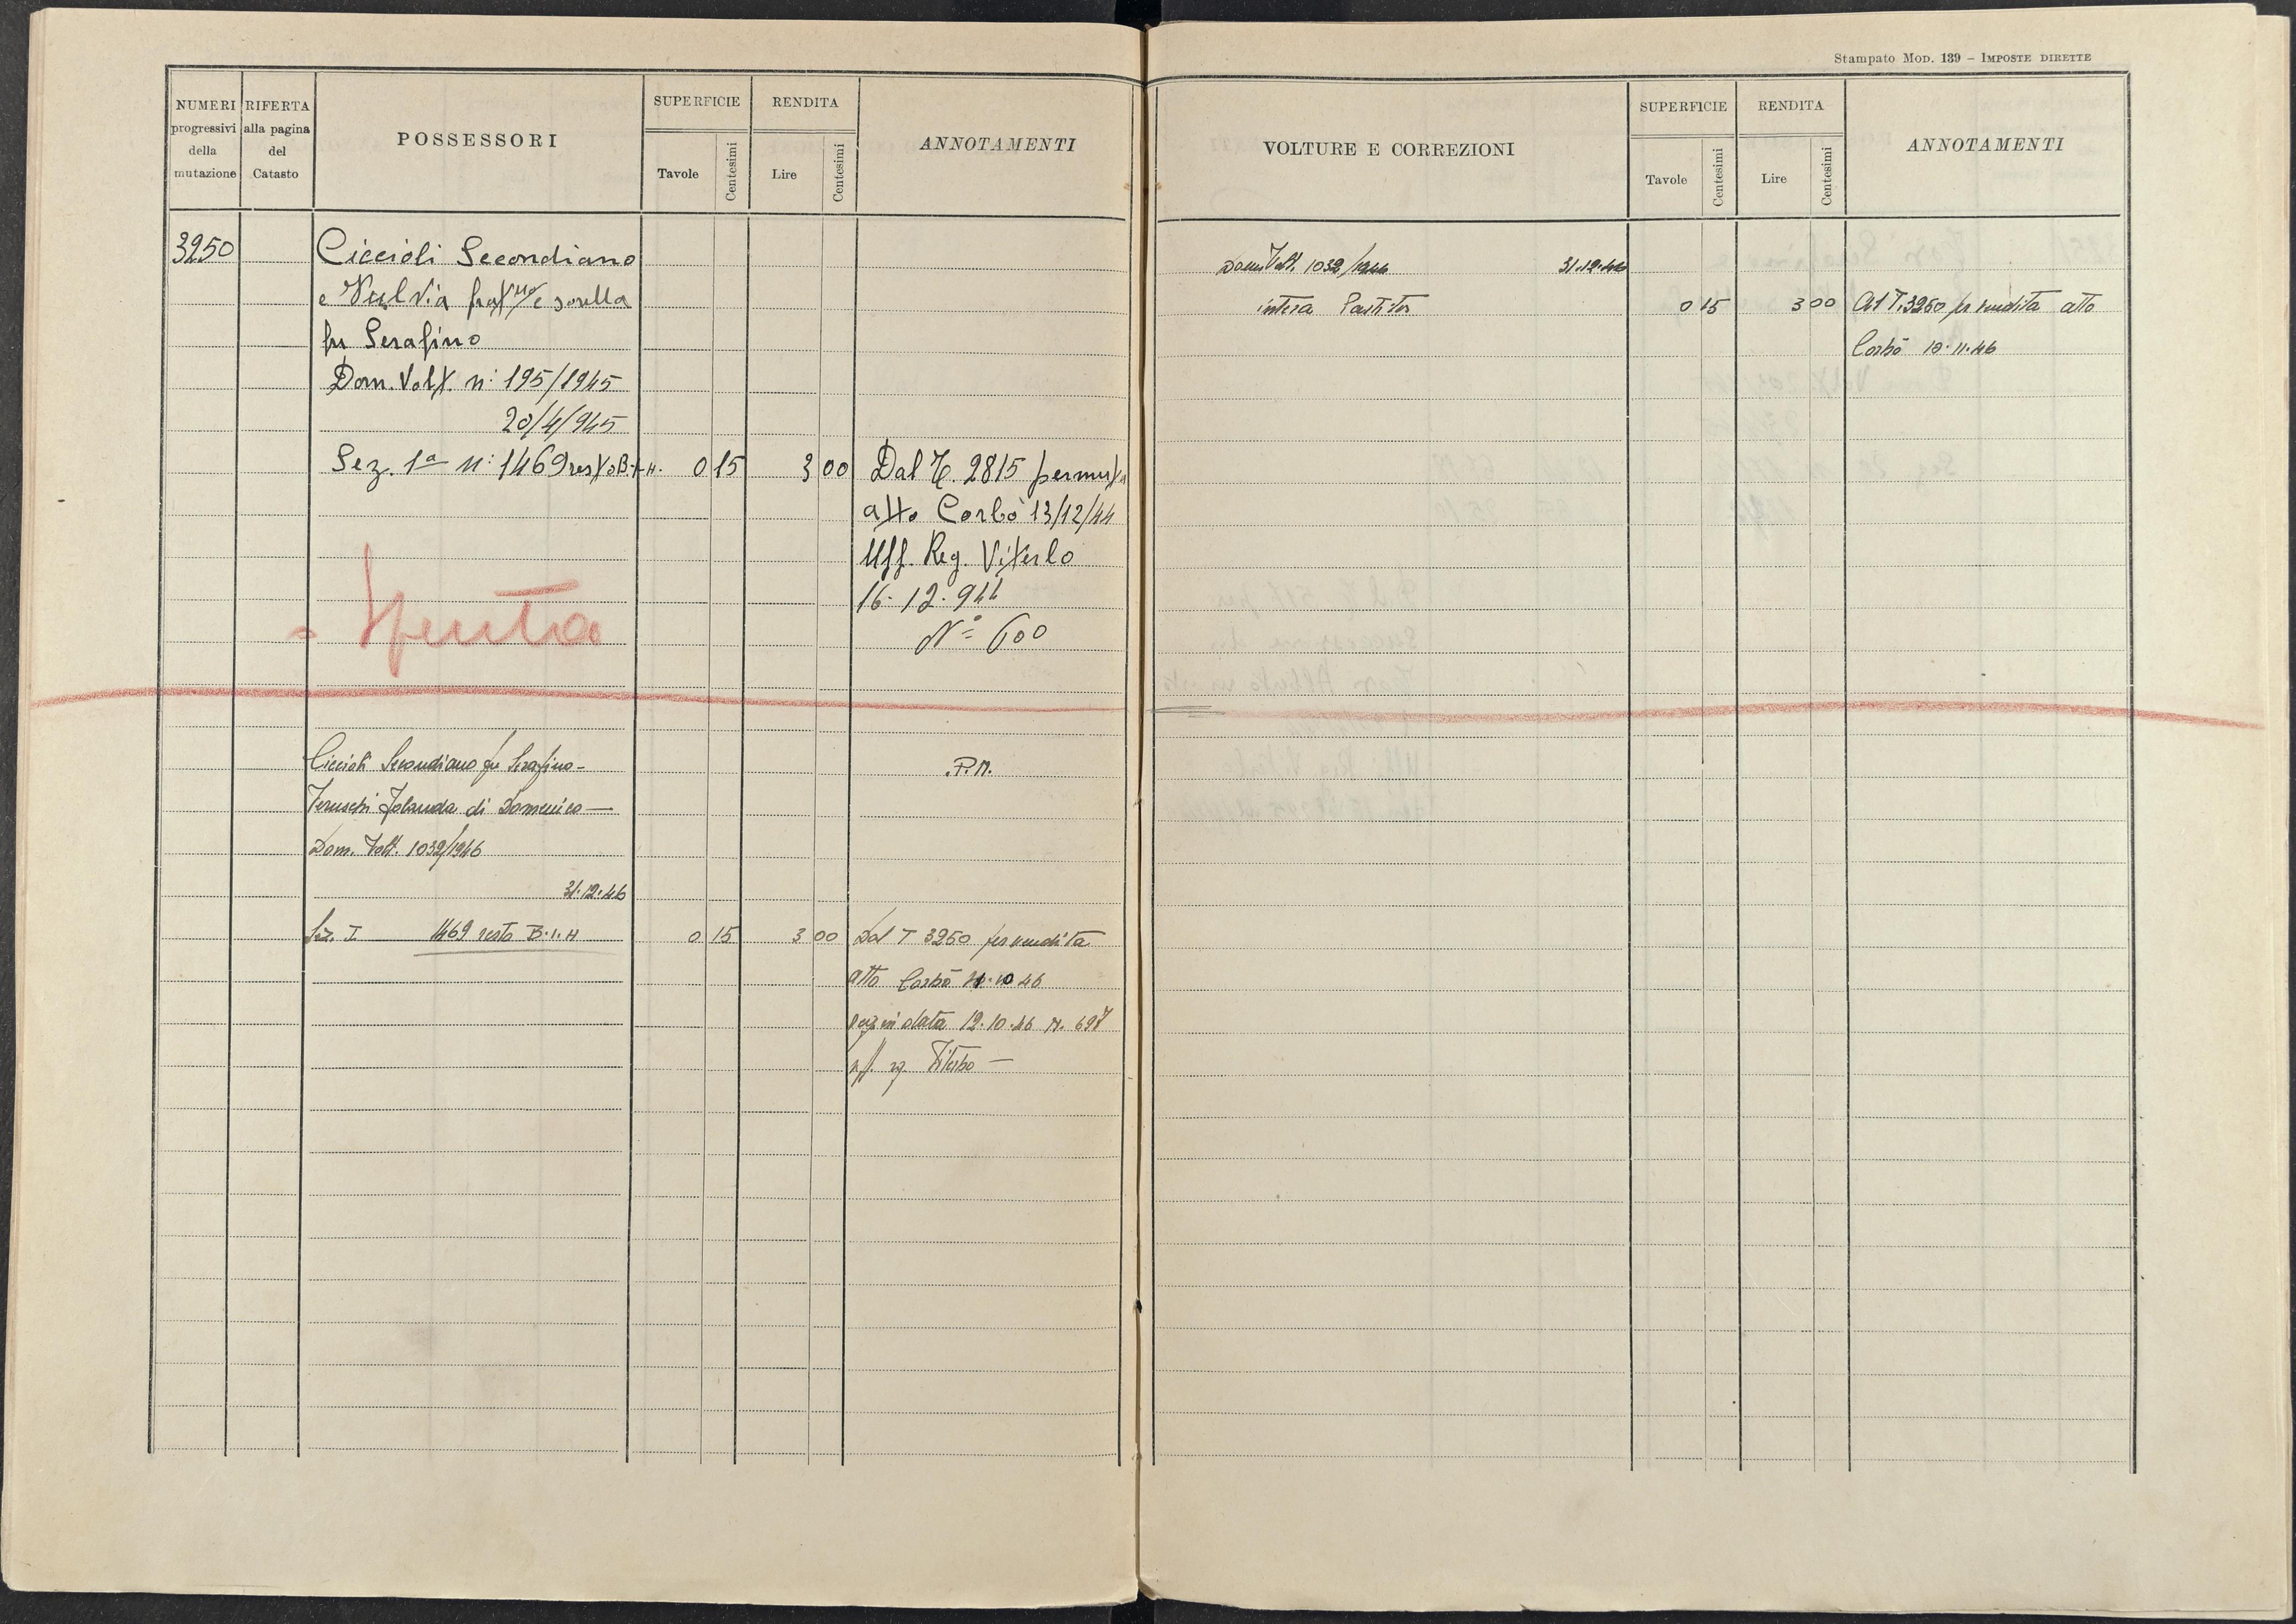 Stampato Mod. 139 – Imposte dirette
NUMERI progressivi della mutazione
RIFERTA alla pagina del Catasto
POSSESSORI
SUPERFICIE
Tavole
Centesimi
RENDITA
Lire
Centesimi
ANNOTAMENTI
3250
Ciccioli Secondiano
e fratello e sorella
fu Serafino
Dom. Volt. n: 195/1945
20/4/945
Sez. 1a n: 1469 resto B. + H. 0 15 3 00 Dal T. 2815 permuta
atto Corbò 13/12/44
Uff. Reg. Viterbo
16. 12. 944
N° 600
Spenta
Ciccioli Secondiano fu Serafino –
P.M.
Jolanda di Domenico —
Dom. Volt. 1032/1946
31.12.46
Sez. I 1469 resto B. H 0 15 3 00 Dal T 3250 per vendita
atto Corbò 46
in data 12.10.46 N. 697
Viterbo —
VOLTURE E CORREZIONI
SUPERFICIE
Tavole
Centesimi
RENDITA
Lire
Centesimi
ANNOTAMENTI
Dom. Volt. 1032/1946 31.12.46
intera Partita 0 15 3 00 Al T. 3250 per vendita atto
Corbò 10.11.46